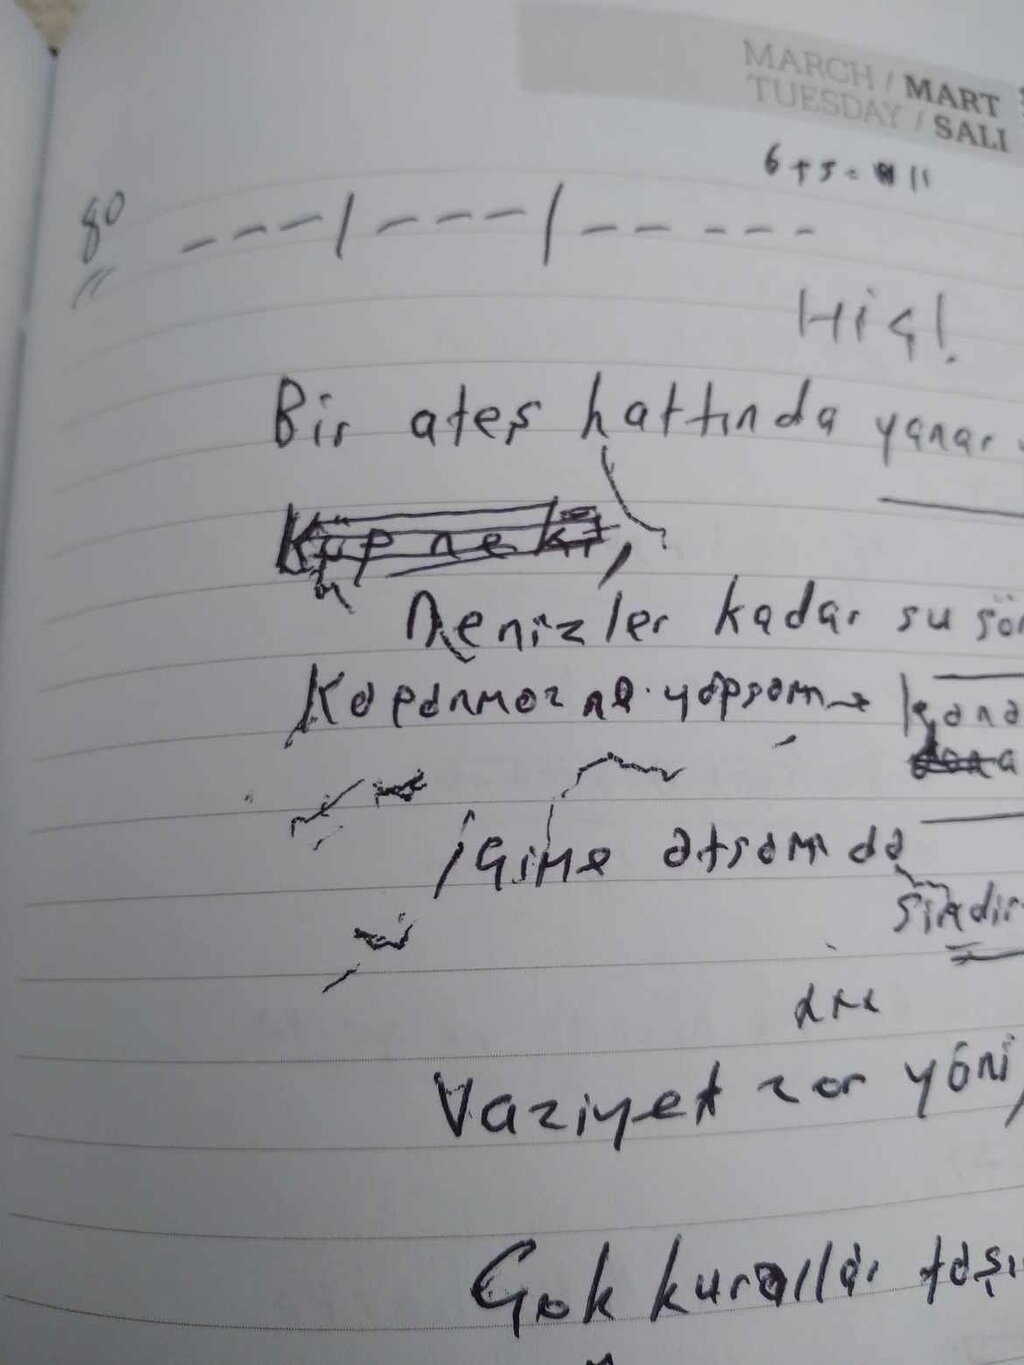 MARCH / MART
TUESDAY / SALI
6+5= 11
80
Hiç!
Bir ateş hattında yanar
Denizler kadar su
Kapanmaz ne yapsam
içime atsam da
Vaziyet zor yani
Çok kurallar